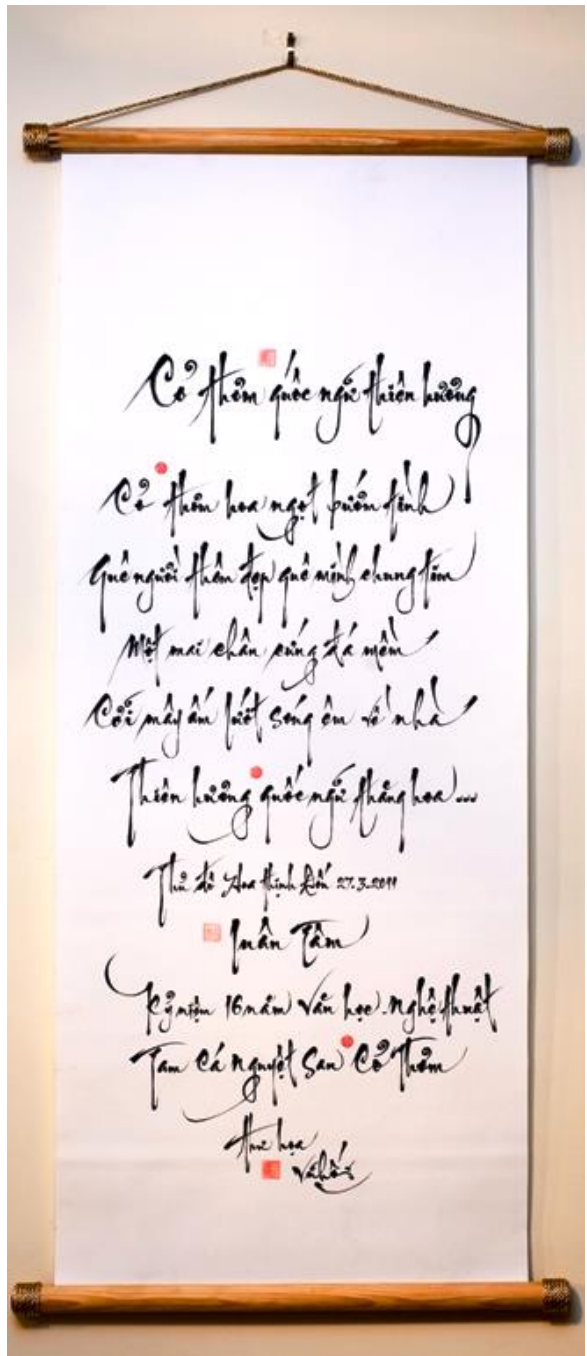 Cỏ thơm quốc ngữ thiên hương
Cỏ thơm hoa ngọt bướm tình
Quê người thêm đẹp quê mình chung tim
Một mai chân cứng đá mềm
Cỡi mây ấm lướt sóng êm về nhà
Thiên hương quốc ngữ thăng hoa...
Thủ đô Hoa Thịnh Đốn 27.3.2011
Tâm
Kỷ niệm 16 năm Văn học. Nghệ thuật
Tam Cá Nguyệt San Cỏ Thơm
thư họa